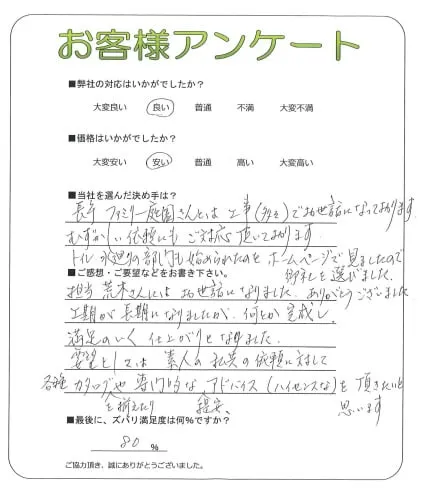 お客様アンケート
■弊社の対応はいかがでしたか？
大変良い 良い 普通 不満 大変不満
■価格はいかがでしたか？
大変安い 安い 普通 高い 大変高い
■当社を選んだ決め手は？
長年 ファミリー庭園さんとは 工事(多々)でお世話になっております
むずかしい依頼にも ご対応頂いております
トイレ 水廻りの部門も始められたのを ホームページで見ましたので
御社を選びました。
■ご感想・ご要望などをお書き下さい。
担当 荒木さんには お世話になりました。ありがとうございました
工期が 長期になりましたが、何とか 完成し、
満足のいく 仕上がりと なりました。
要望としては 素人の 私共の 依頼に対して
各種 カタログや 専門的な アドバイス(ハイセンスな)を 頂きたいと
を揃えたり 提案、 思います
■最後に、ズバリ満足度は何％ですか？
80 %
ご協力頂き、誠にありがとうございました。